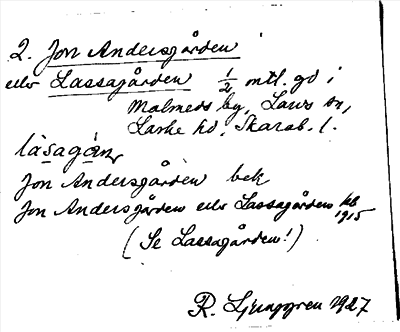 2. Jon Andersgården
eller Lassagården 1/2 mtl. gd i
Malmeds by, Lavs sn,
Laske hd, Skarab. l.
làsagán,
Jon Andersgården bek
Jon Andersgården eller Lassagården kb
1915
(Se Lassagården!)
R. Ljunggren 1927